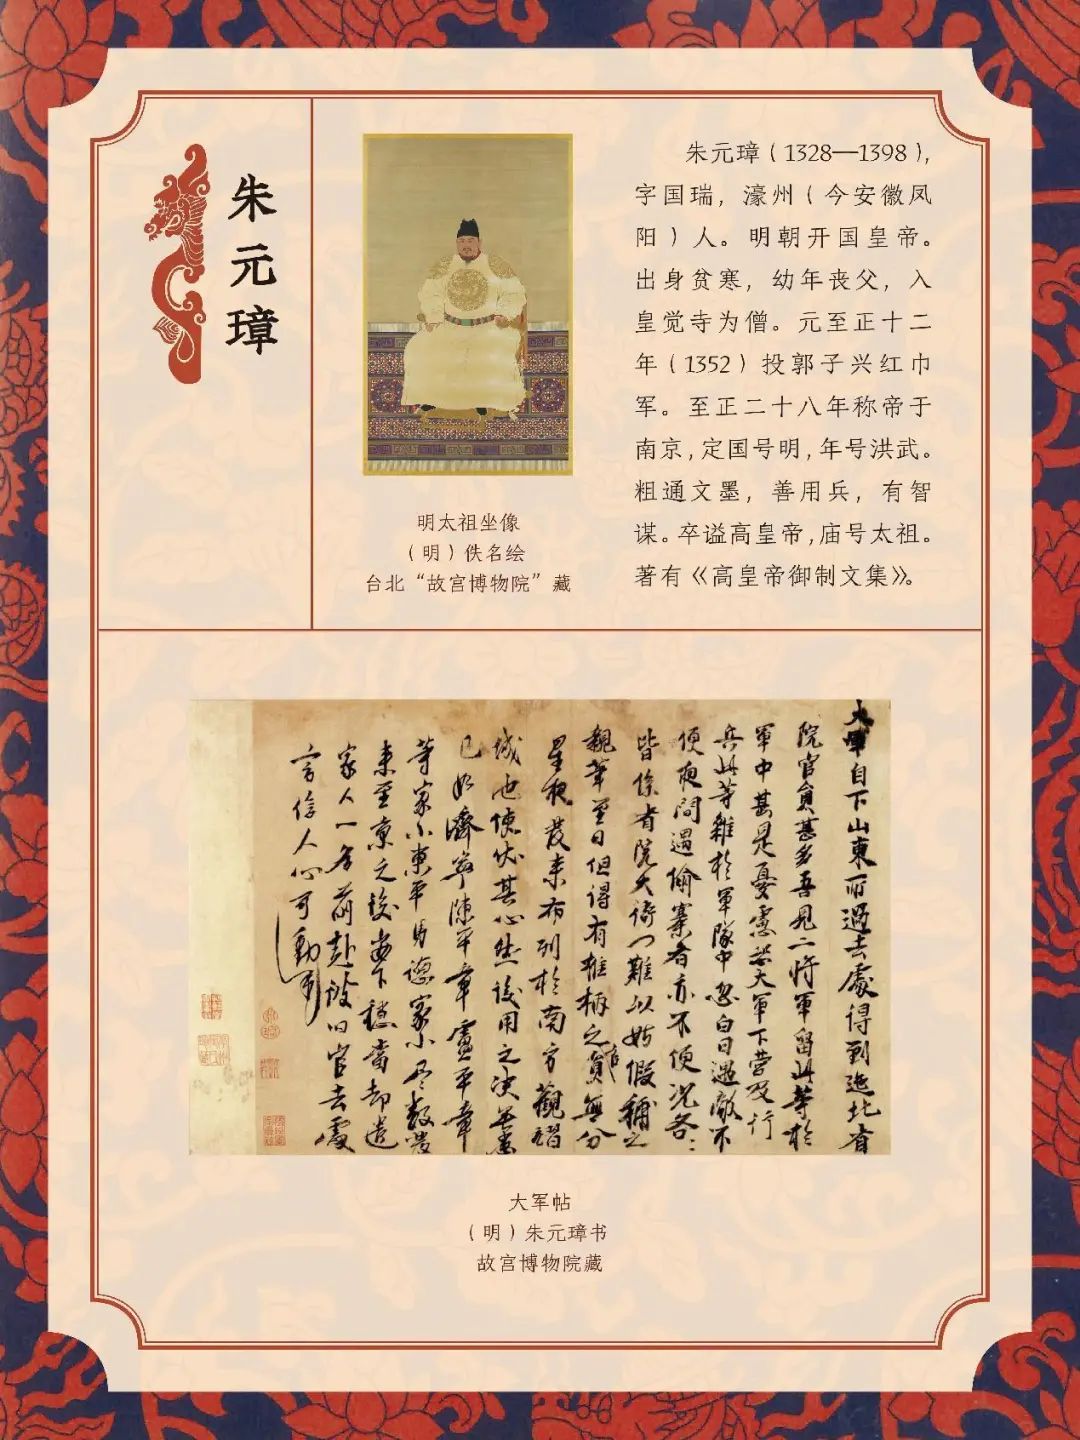 朱元璋
朱元璋（1328—1398），
字国瑞，濠州（今安徽凤
阳）人。明朝开国皇帝。
出身贫寒，幼年丧父，入
皇觉寺为僧。元至正十二
年（1352）投郭子兴红巾
军。至正二十八年称帝于
南京，定国号明，年号洪武。
粗通文墨，善用兵，有智
谋。卒谥高皇帝，庙号太祖。
著有《高皇帝御制文集》。
明太祖坐像
（明）佚名绘
台北“故宫博物院”藏
大軍自下山東所過去處得到迤北省
院官員甚多吾見二將軍留此等於
軍中甚是憂慮恐大軍下營及行
兵此等雜於軍隊中忽白日遇敵不
便夜間遇偷寨者亦不便況各
皆係省院大衙門難以姑假補之
親筆至日但得有椎柄之官員無分
星夜發來布列於南方觀玩
城池使伏其心然後用之決無患
已如濟寧陳平章盧平章
等家小東平馬德家小尽数發
来至京之後安下穩當却遣
家人一名前赴彼旧官去處
言信人心可動
大军帖
（明）朱元璋书
故宫博物院藏